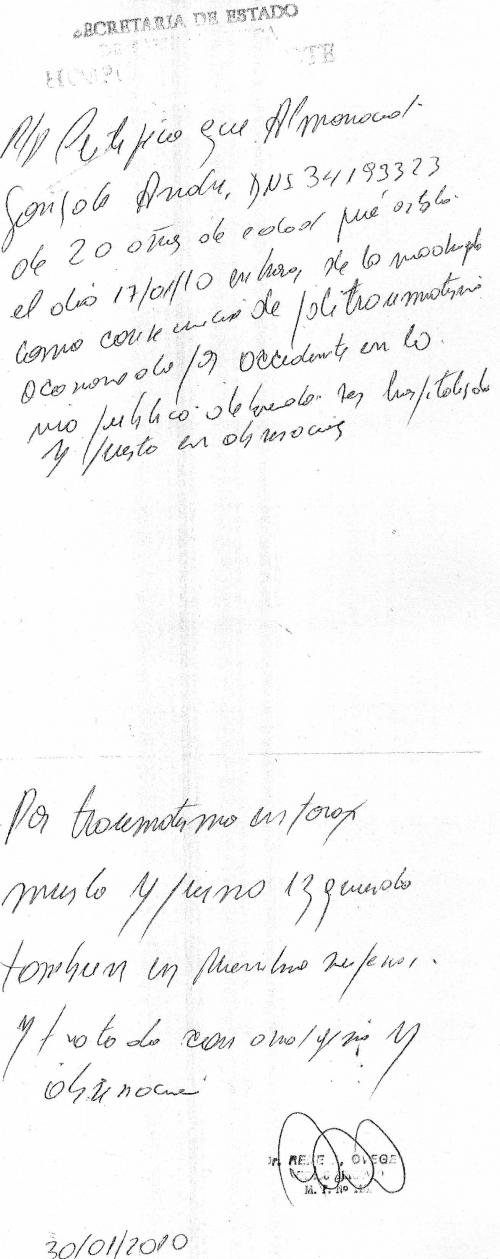 SECRETARIA DE ESTADO
R/p Certifico que Almonacid
Gonzalo Andre, DNI 34193323
de 20 años de edad fué asisto
el dia 17/01/10 en horas de la madrugada
como consecuencia de politraumatismo
ocasionado por accidente en la
via publica debiendo ser hospitalizado
y puesto en observacion
Por traumatismo en torax
muslo y pierna izquierda
tambien en miembro superior.
y tratado con analgesia y
observacion
Dr. RENE OVEGE
M. P. Nº
30/01/2010